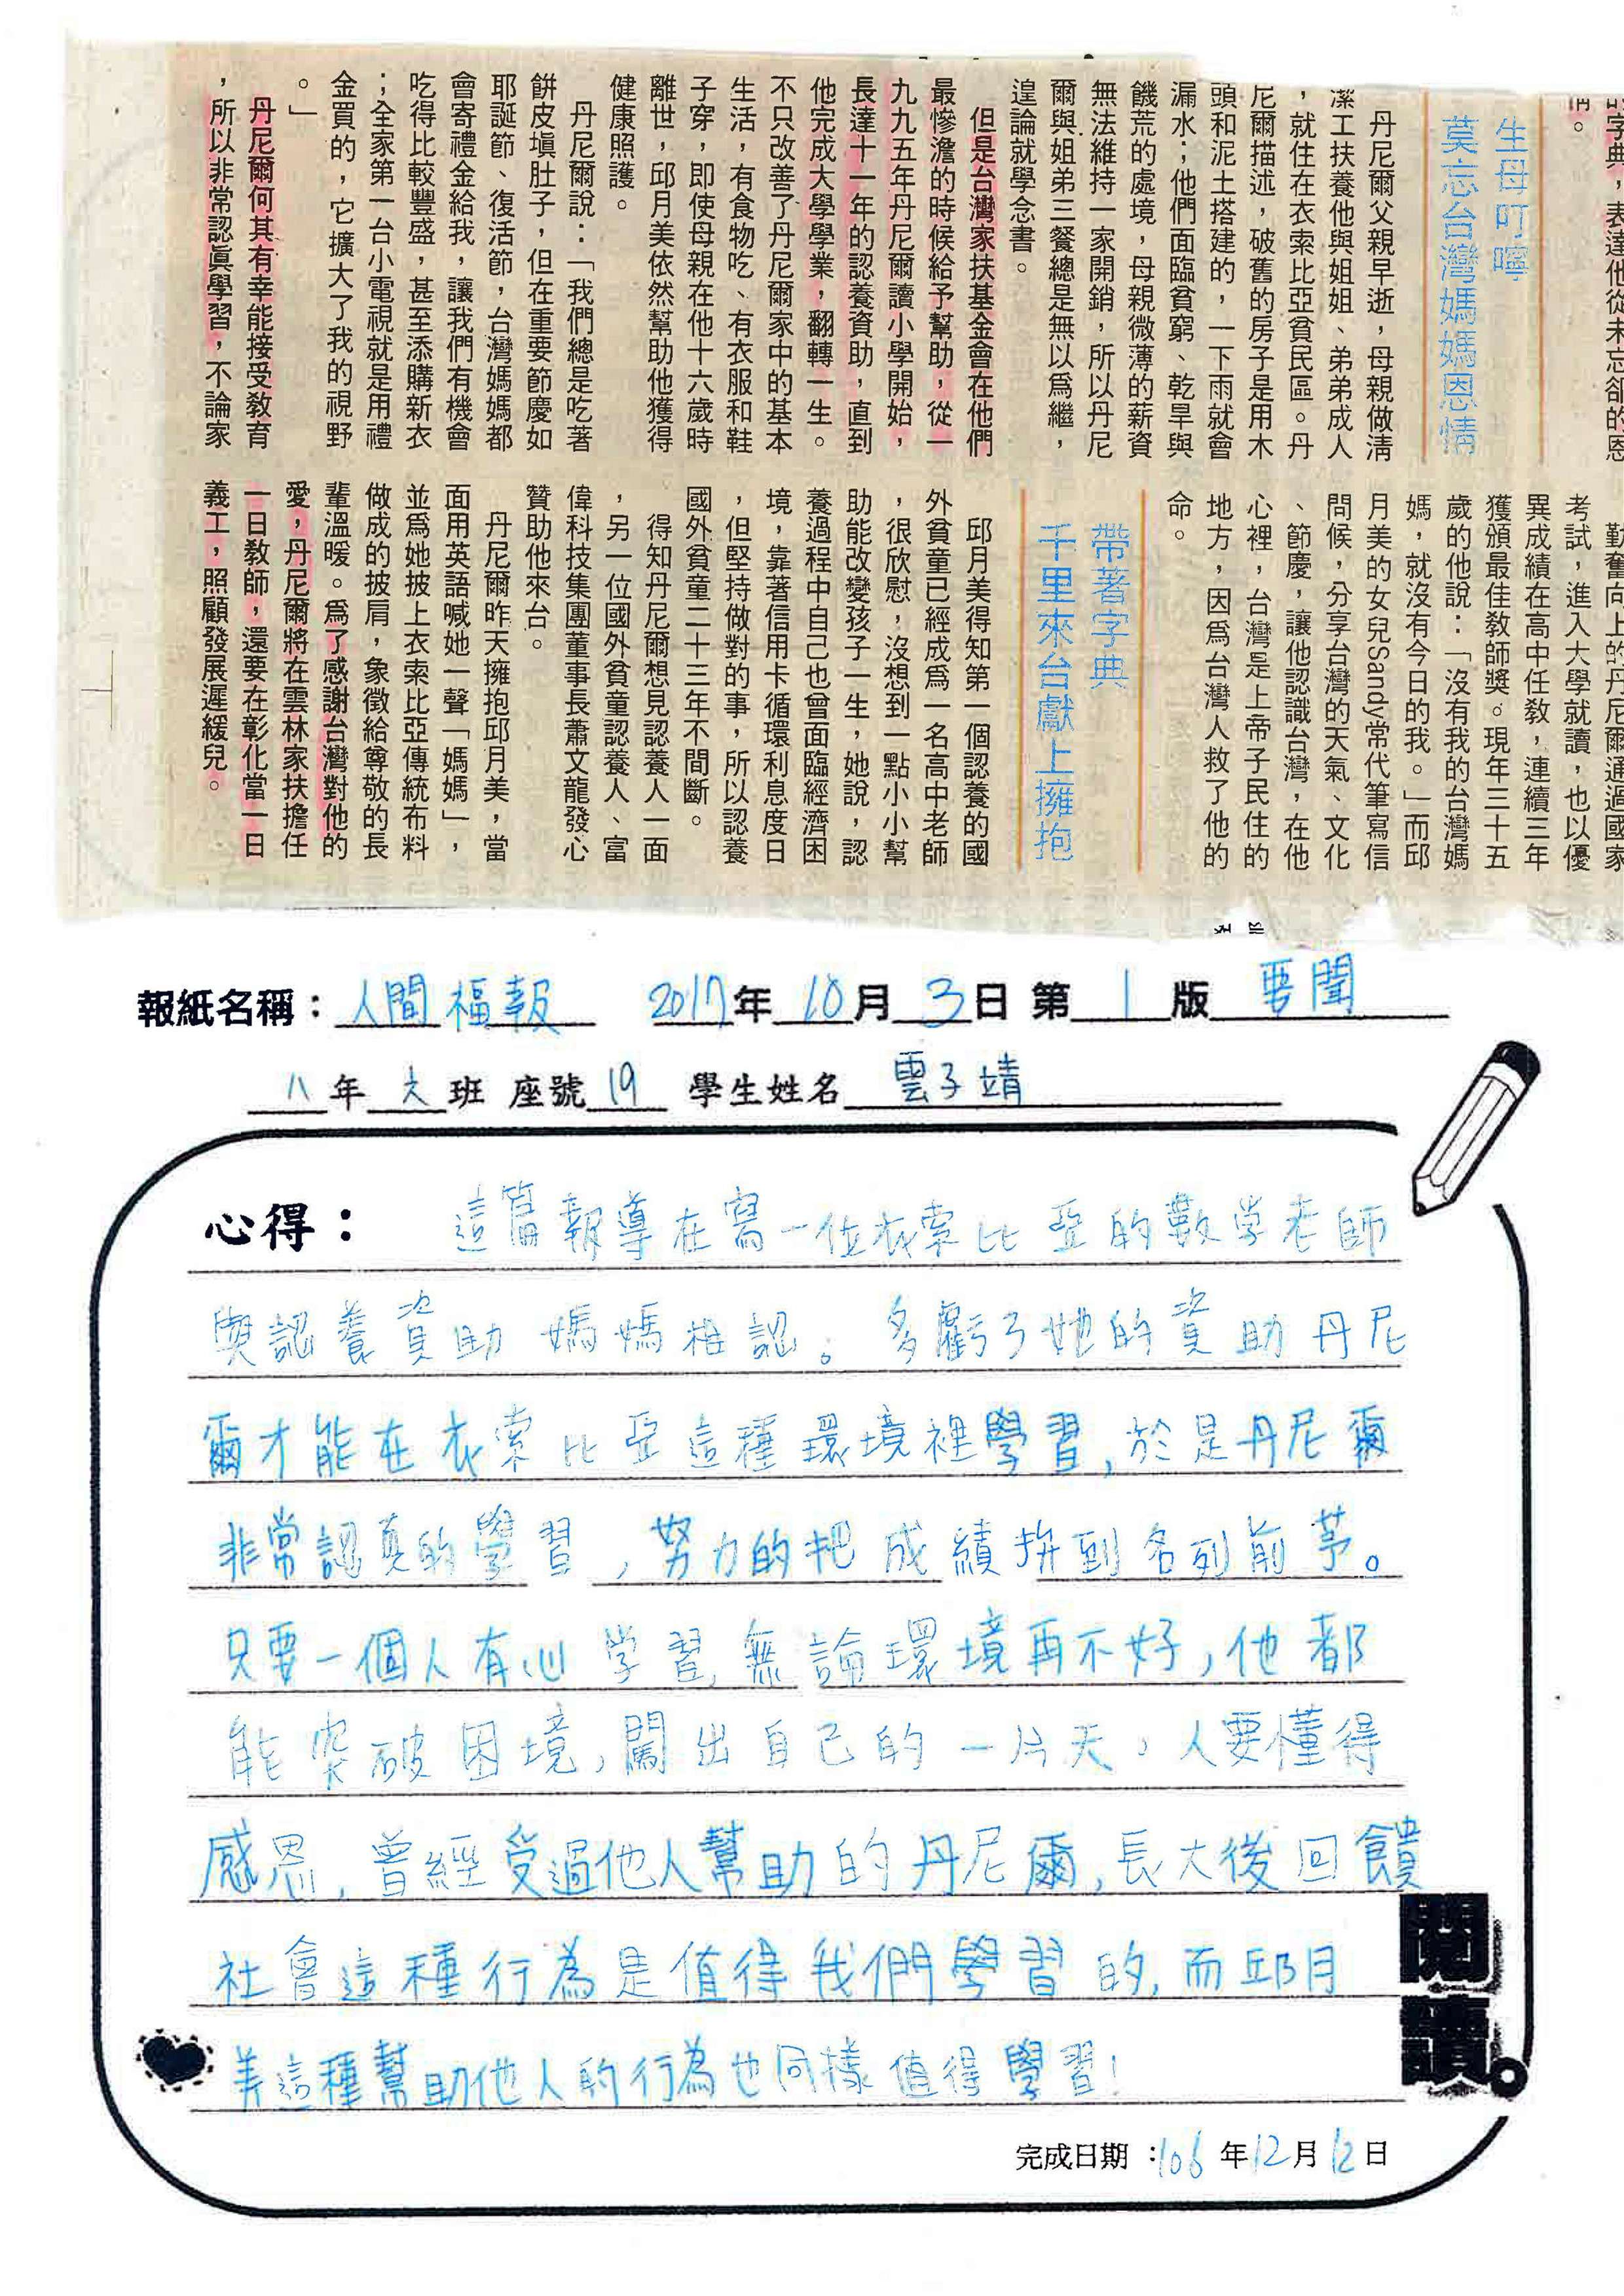 的字典，表達他從未忘卻的恩
情。
生母叮嚀
莫忘台灣媽媽恩情
丹尼爾父親早逝，母親做清
潔工扶養他與姐姐、弟弟成人
，就住在衣索比亞貧民區。丹
尼爾描述，破舊的房子是用木
頭和泥土搭建的，一下雨就會
漏水；他們面臨貧窮、乾旱與
饑荒的處境，母親微薄的薪資
無法維持一家開銷，所以丹尼
爾與姐弟三餐總是無以為繼，
遑論就學念書。
但是台灣家扶基金會在他們
最慘澹的時候給予幫助，從一
九九五年丹尼爾讀小學開始，
長達十一年的認養資助，直到
他完成大學學業，翻轉一生。
不只改善了丹尼爾家中的基本
生活，有食物吃、有衣服和鞋
子穿，即使母親在他十六歲時
離世，邱月美依然幫助他獲得
健康照護。
丹尼爾說：「我們總是吃著
餅皮塡肚子，但在重要節慶如
耶誕節、復活節，台灣媽媽都
會寄禮金給我，讓我們有機會
吃得比較豐盛，甚至添購新衣
；全家第一台小電視就是用禮
金買的，它擴大了我的視野
。」
丹尼爾何其有幸能接受教育
，所以非常認眞學習，不論家
勤奮向上的丹尼爾通過國家
考試，進入大學就讀，也以優
異成績在高中任教，連續三年
獲頒最佳教師獎。現年三十五
歲的他說：「沒有我的台灣媽
媽，就沒有今日的我。」而邱
月美的女兒Sandy常代筆寫信
問候，分享台灣的天氣、文化
、節慶，讓他認識台灣，在他
心裡，台灣是上帝子民住的
地方，因為台灣人救了他的
命。
帶著字典
千里來台獻上擁抱
邱月美得知第一個認養的國
外貧童已經成為一名高中老師
，很欣慰，沒想到一點小小幫
助能改變孩子一生，她說，認
養過程中自己也曾面臨經濟困
境，靠著信用卡循環利息度日
，但堅持做對的事，所以認養
國外貧童二十三年不間斷。
得知丹尼爾想見認養人一面
，另一位國外貧童認養人、富
偉科技集團董事長蕭文龍發心
贊助他來台。
丹尼爾昨天擁抱邱月美，當
面用英語喊她一聲「媽媽」，
並為她披上衣索比亞傳統布料
做成的披肩，象徵給尊敬的長
輩溫暖。為了感謝台灣對他的
愛，丹尼爾將在雲林家扶擔任
一日教師，還要在彰化當一日
義工，照顧發展遲緩兒。
報紙名稱：人間福報 2017年10月3日 第1版 要聞
八年六班 座號19 學生姓名 雲子靖
心得：這篇報導在寫一位衣索比亞的數学老師
與認養資助媽媽相認。多虧了她的資助丹尼
爾才能在衣索比亞這種環境裡學習,於是丹尼爾
非常認真的學習,努力的把成績拚到名列前茅。
只要一個人有心学習,無論環境再不好,他都
能突破困境,闖出自己的一片天,人要懂得
感恩,曾經受過他人幫助的丹尼爾,長大後回饋
社會這種行為是值得我們學習的,而邱月
美這種幫助他人的行為也同樣值得學習!
閱讀。
完成日期：106年12月12日